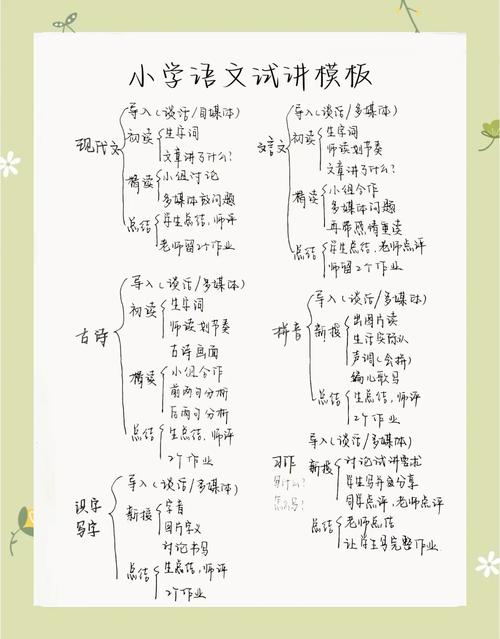 小学语文试讲模板
现代文
导入(谈话/自媒体)
初读
生字词
文章讲了什么?
精读
小组讨论
多媒体放问题
总结
学生总结,师评
老师留2个作业
文言文
导入(谈话/多媒体)
初读
生字词
师读划节奏
文章讲了什么?
精读
小组合作
多媒体问题
再带感情重读
总结
学生总结,老师点评
师留2个作业
古诗
导入(谈话/多媒体)
初读
生字词
师读划节奏
古诗画面
精读
小组合作
前两句分析
后两句分析
总结
生总结,师评
2个作业
拼音
导入(谈话/多媒体)
新授
出图片读
生活实际认
声调(会拼)
编儿歌写
总结
生总结,师评
2个作业
识字
写字
导入(谈话/多媒体)
新授
字音
图片字义
讨论书写
总结
生总结,师评
2个作业
习作
写什么?
怎么写?
导入(谈话/多媒体)
新授
讨论试讲要求
学生写并会分享
同学点评,老师点评
总结
老师总结
让学生写完整作业.